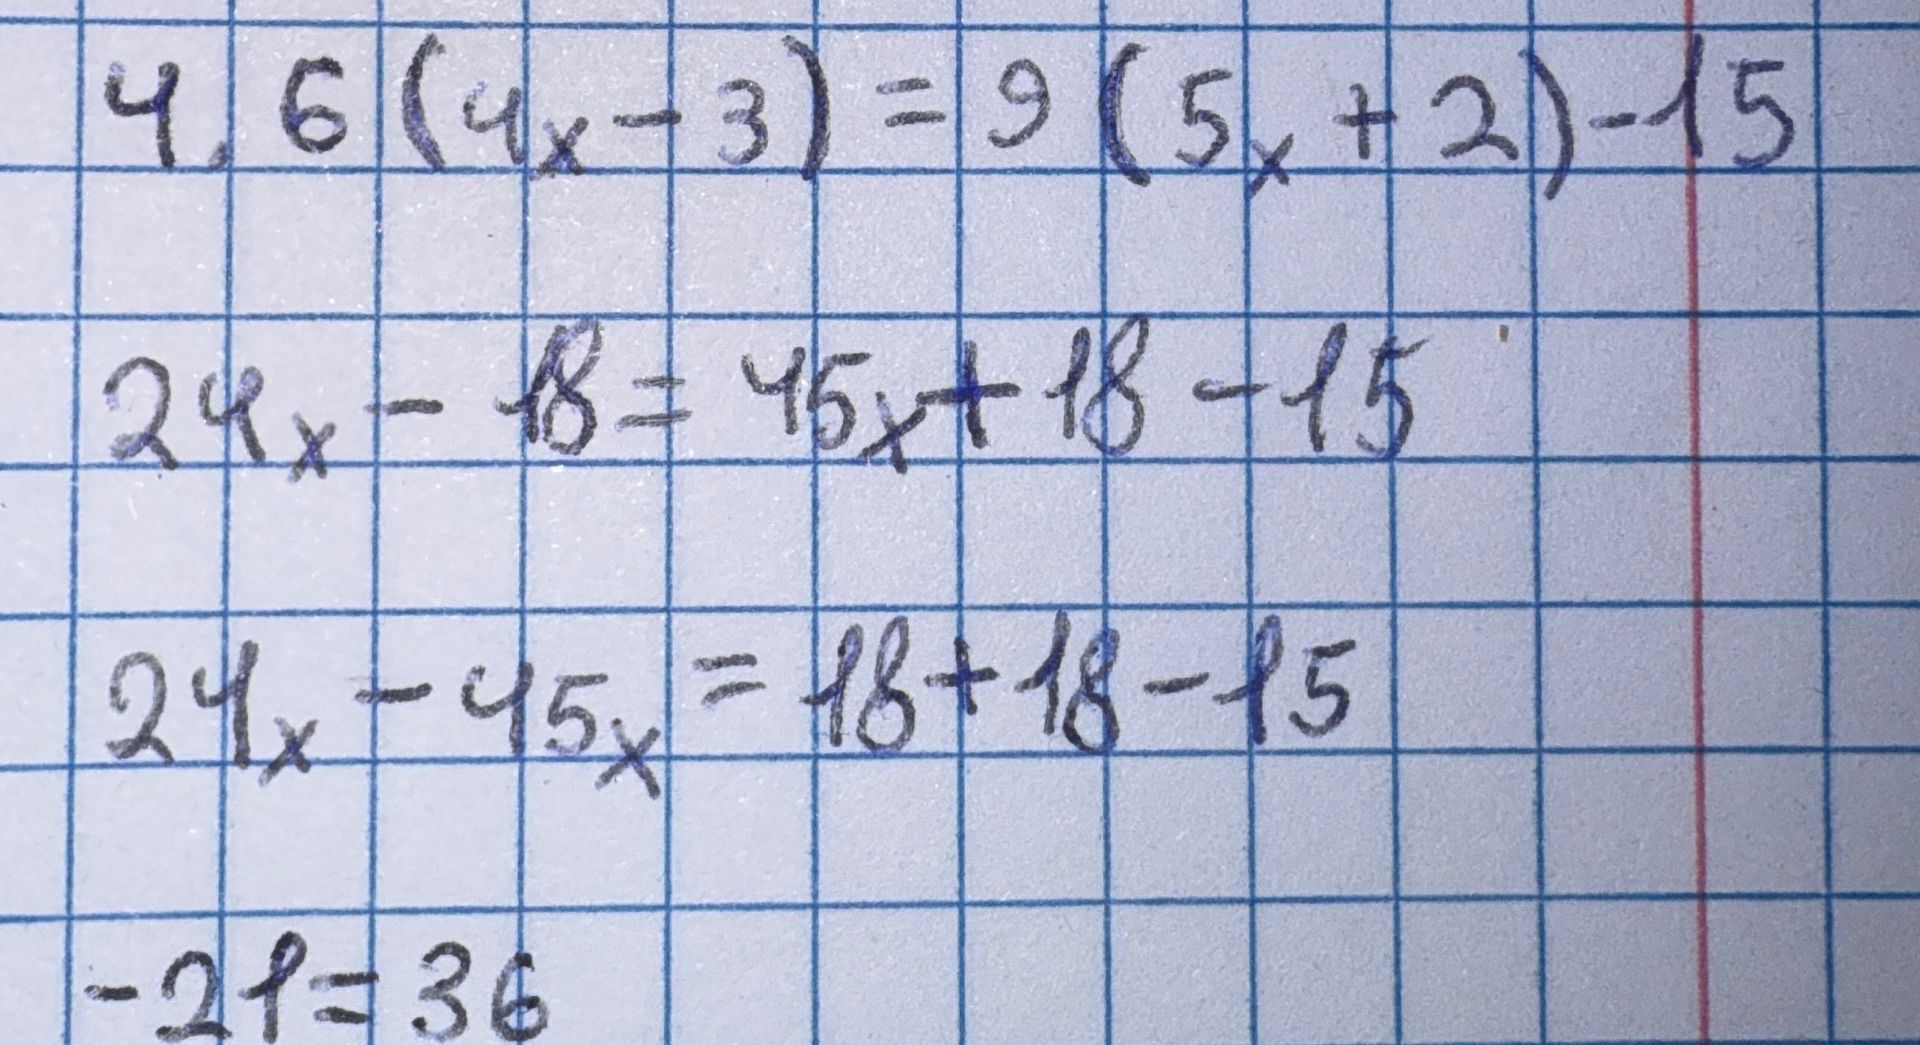 4. 6(4x-3)=9(5x+2)-15
24x-18=45x+18-15
24x-45x=18+18-15
-21=36